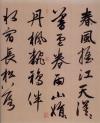 春風搖江天漠
暮雲卷雨山娟
丹楓翻鴉伴
水宿長松落